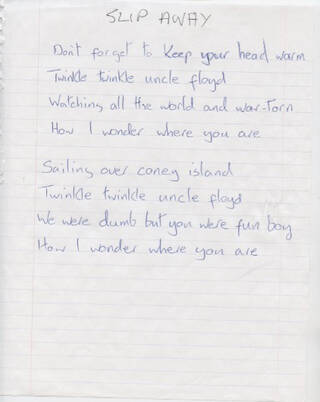 SLIP AWAY
Don't forget to keep your head warm
Twinkle twinkle uncle floyd
Watching all the world and war-torn
How I wonder where you are
Sailing over coney island
Twinkle twinkle uncle floyd
We were dumb but you were fun boy
How I wonder where you are